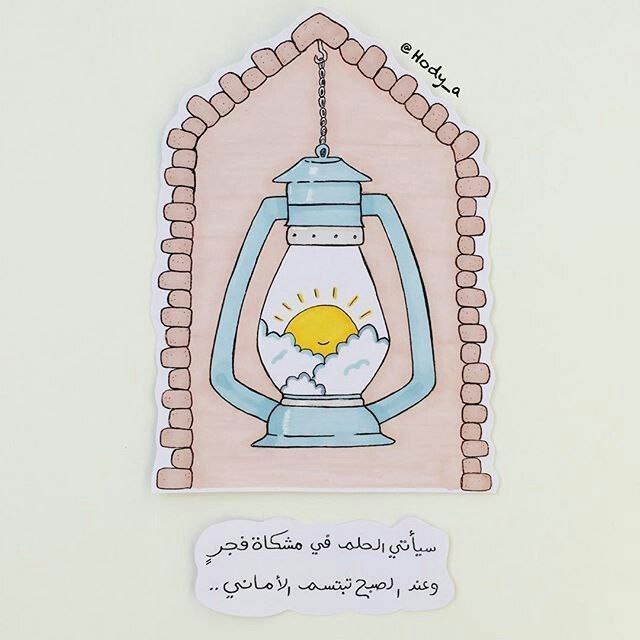 @Hody_a
سيأتي الحلم في مشكاة فجرٍ
وعند الصبح تبتسم الأماني ..